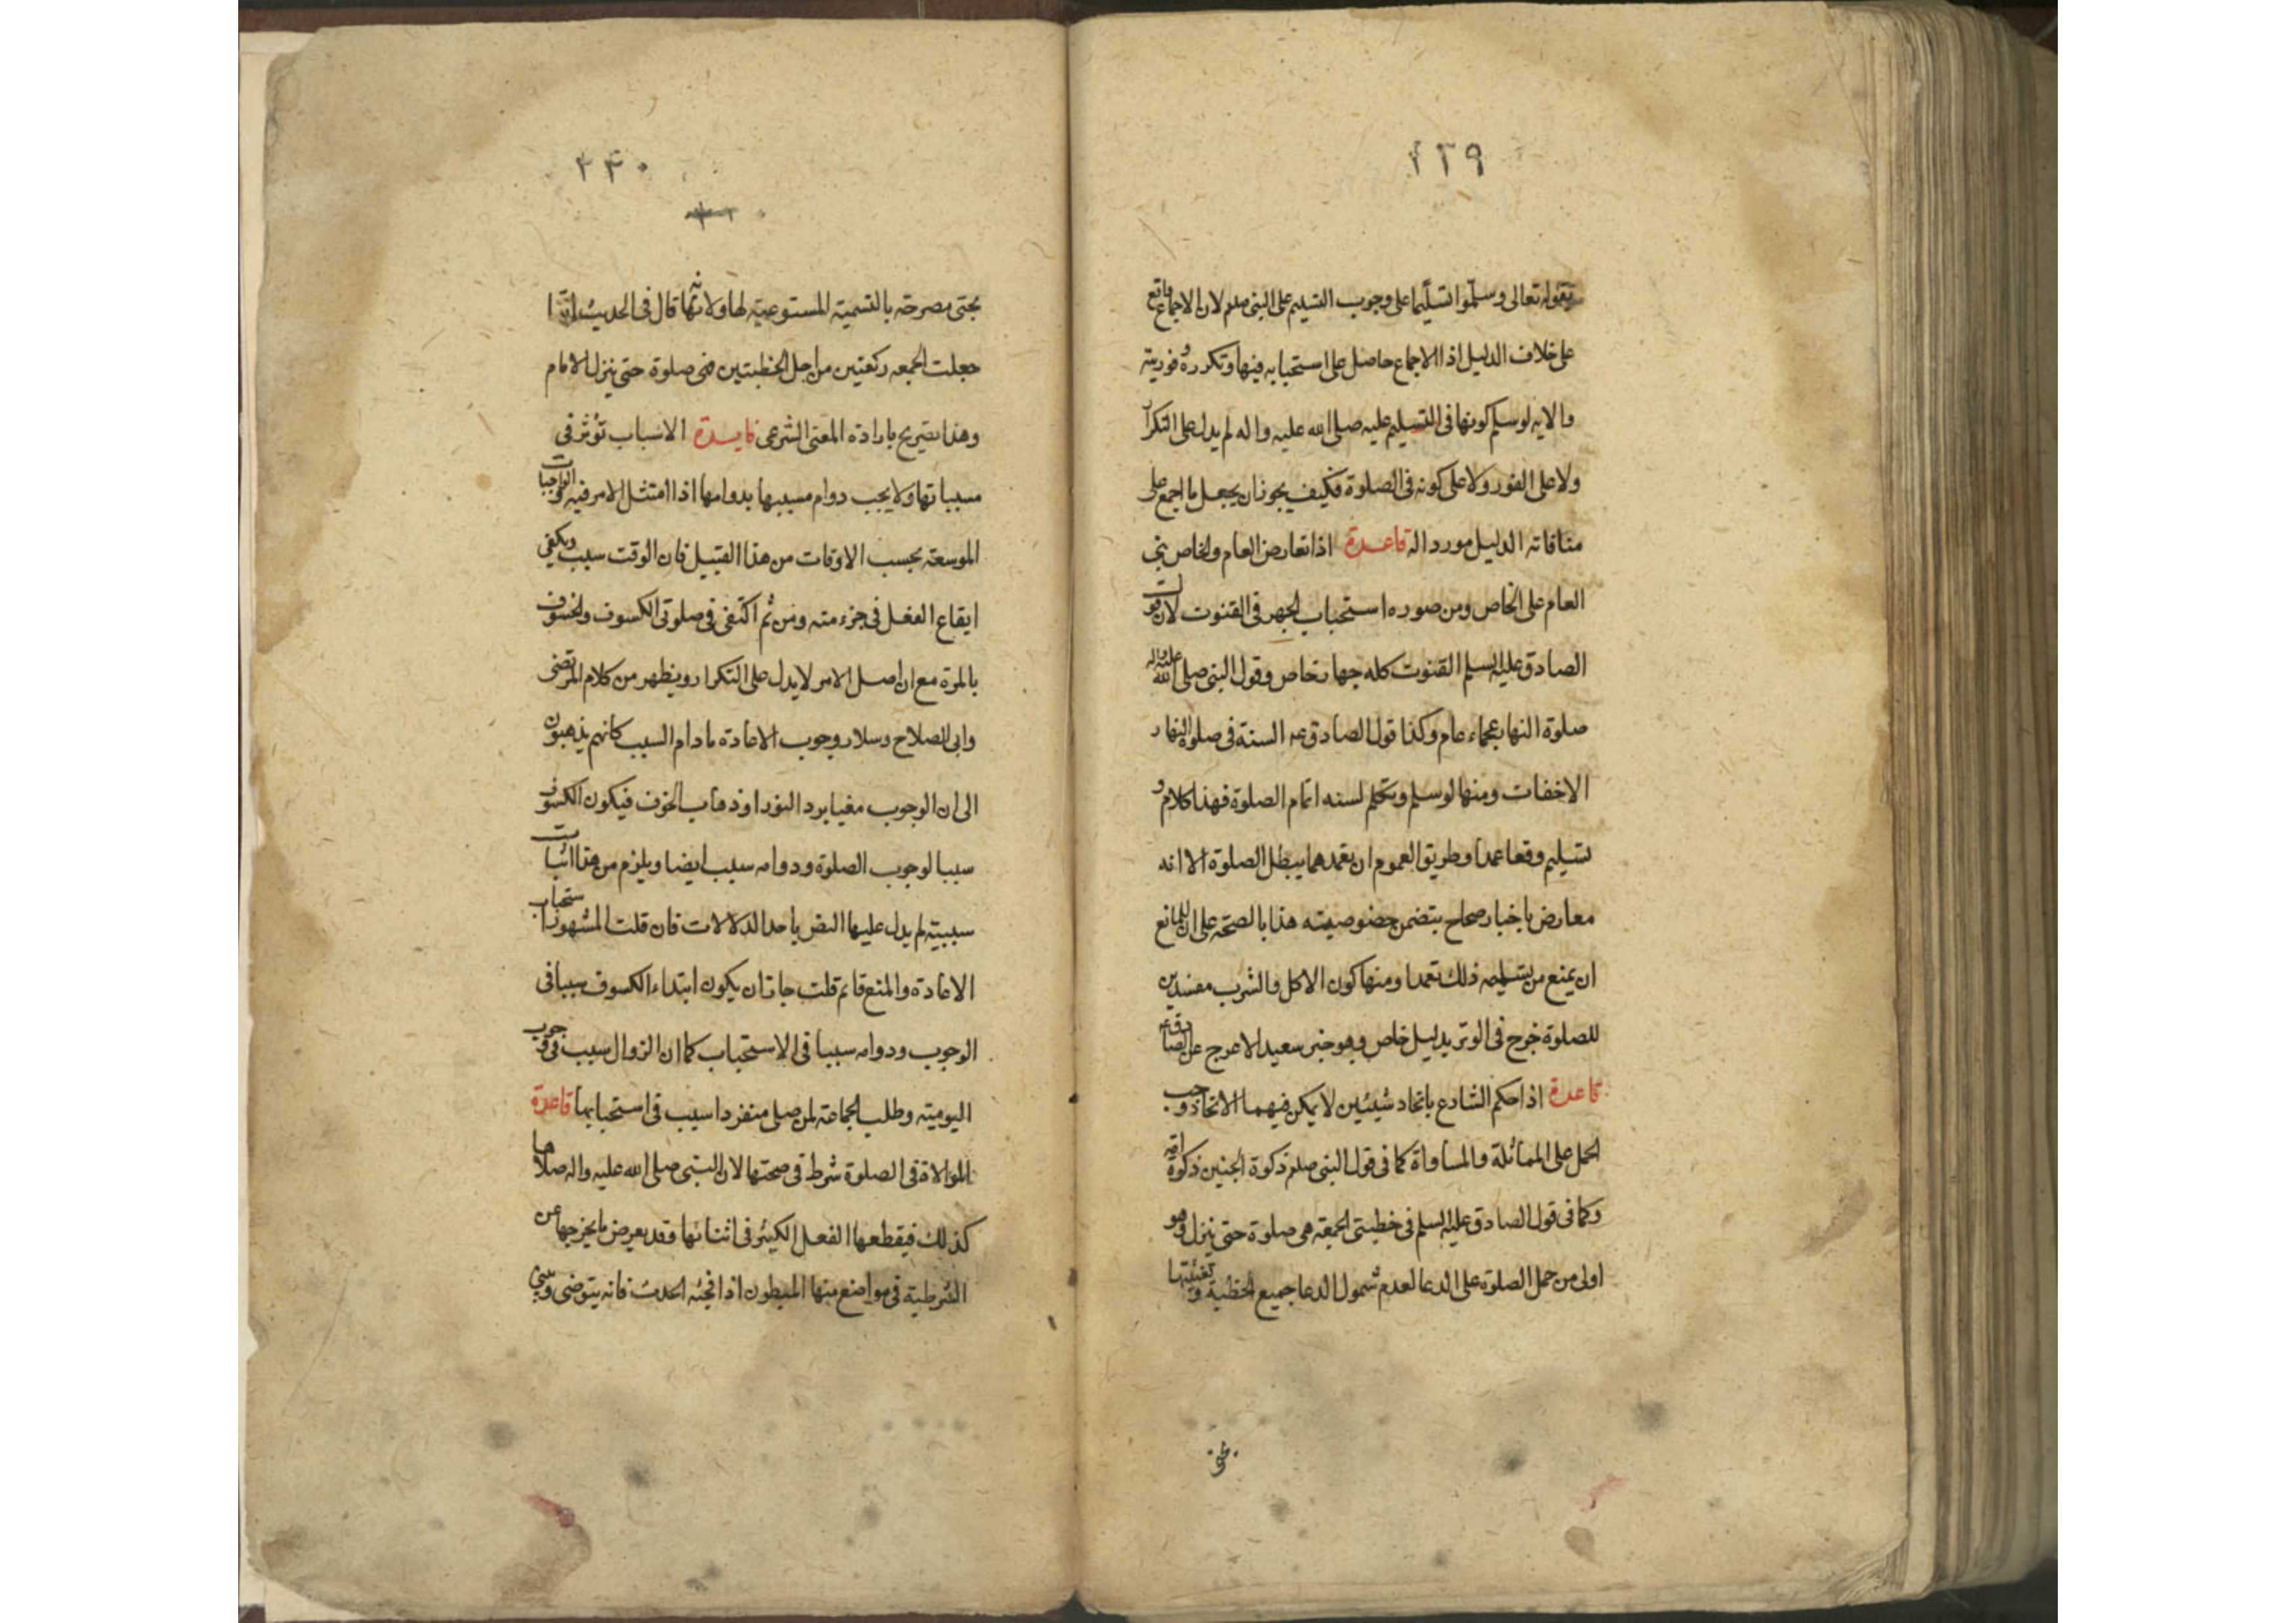 ٢٣٩
بقوله تعالى وسلموا تسليما على وجوب التسليم على النبى صلعم لان الاجماع واقع
على خلاف الدليل اذ الاجماع حاصل على استحبابه فيها وتكرره وفوريته
والايه لو سلم كونها فى التسليم عليه صلى الله عليه واله لم يدل على التكرار
ولا على الفور ولا على كونه فى الصلوة فكيف يجوز ان يجعل ما اجمع على
منافاته الدليل موردا له قاعدة اذا تعارض العام والخاص بنى
العام على الخاص ومن صوره استحباب الجهر فى القنوت لان قول
الصادق عليه السلم القنوت كله جهار خاص وقول النبى صلى الله عليه واله
صلوة النهار عجماء عام وكذا قول الصادق عه السنة فى صلوة النهار
الاخفات ومنها لو سلم وتكلم لسنه اتمام الصلوة فهذا كلام و
تسليم وقعا عمدا وطريق العموم ان تعمدهما يبطل الصلوة الا انه
معارض باخبار صحاح يتضمن خصوصيته هذا بالصحة على ان للمانع
ان يمنع من تسليمه ذلك تعمدا ومنها كون الاكل والشرب مفسدين
للصلوة خرج فى الوتر بدليل خاص وهو خبر سعيد الاعرج عن الصادق عه
قاعدة اذا حكم الشارع باتحاد شيئين لا يمكن فيهما الاتحاد وجب
الحمل على المماثلة والمساواة كما فى قول النبى صلعم ذكوة الجنين ذكوة امه
وكما فى قول الصادق عليه السلم فى خطبتى الجمعة هى صلوة حتى ينزل وهو
اولى من حمل الصلوة على الدعا لعدم شمول الدعا جميع الخطبة و
٢۴٠
مصرحة بالتسمية المستوعبة لها ولانه انما قال فى الحديث انما
جعلت الجمعه ركعتين من اجل الخطبتين فهى صلوة حتى ينزل الامام
وهذا تصريح بارادة المعنى الشرعى فايدة الاسباب تؤثر فى
مسبباتها ولا يجب دوام مسببها بدوامها اذا امتثل الامر فيه والواجبات
الموسعة بحسب الاوقات من هذا القبيل فان الوقت سبب ويكفى
ايقاع الفعل فى جزء منه ومن ثم اكتفى فى صلوتى الكسوف والخسوف
بالمرة مع ان اصل الامر لا يدل على التكرار ويظهر من كلام المرتضى
وابى الصلاح وسلار وجوب الاعادة ما دام السبب كانهم يذهبون
الى ان الوجوب مغيا برد النور او ذهاب الخوف فيكون الكسوف
سببا لوجوب الصلوة ودوامه سبب ايضا ويلزم من هذا اثبات
سببية لم يدل عليها النص باحد الدلالات فان قلت المشهور استحباب
الاعادة والمنع قائم قلت جاز ان يكون ابتداء الكسوف سببا فى
الوجوب ودوامه سببا فى الاستحباب كما ان الزوال سبب فى وجوب
اليومية وطلب الجماعة لمن صلى منفردا سبب فى استحبابها قاعدة
الموالاة فى الصلوة شرط فى صحتها لان النبى صلى الله عليه واله صلاها
كذلك فيقطعها الفعل الكثير فى اثنائها وقد يعرض ما يخرجها عن
الشرطية فى مواضع منها المبطون اذا فجئه الحدث فانه يتوضى ويبنى